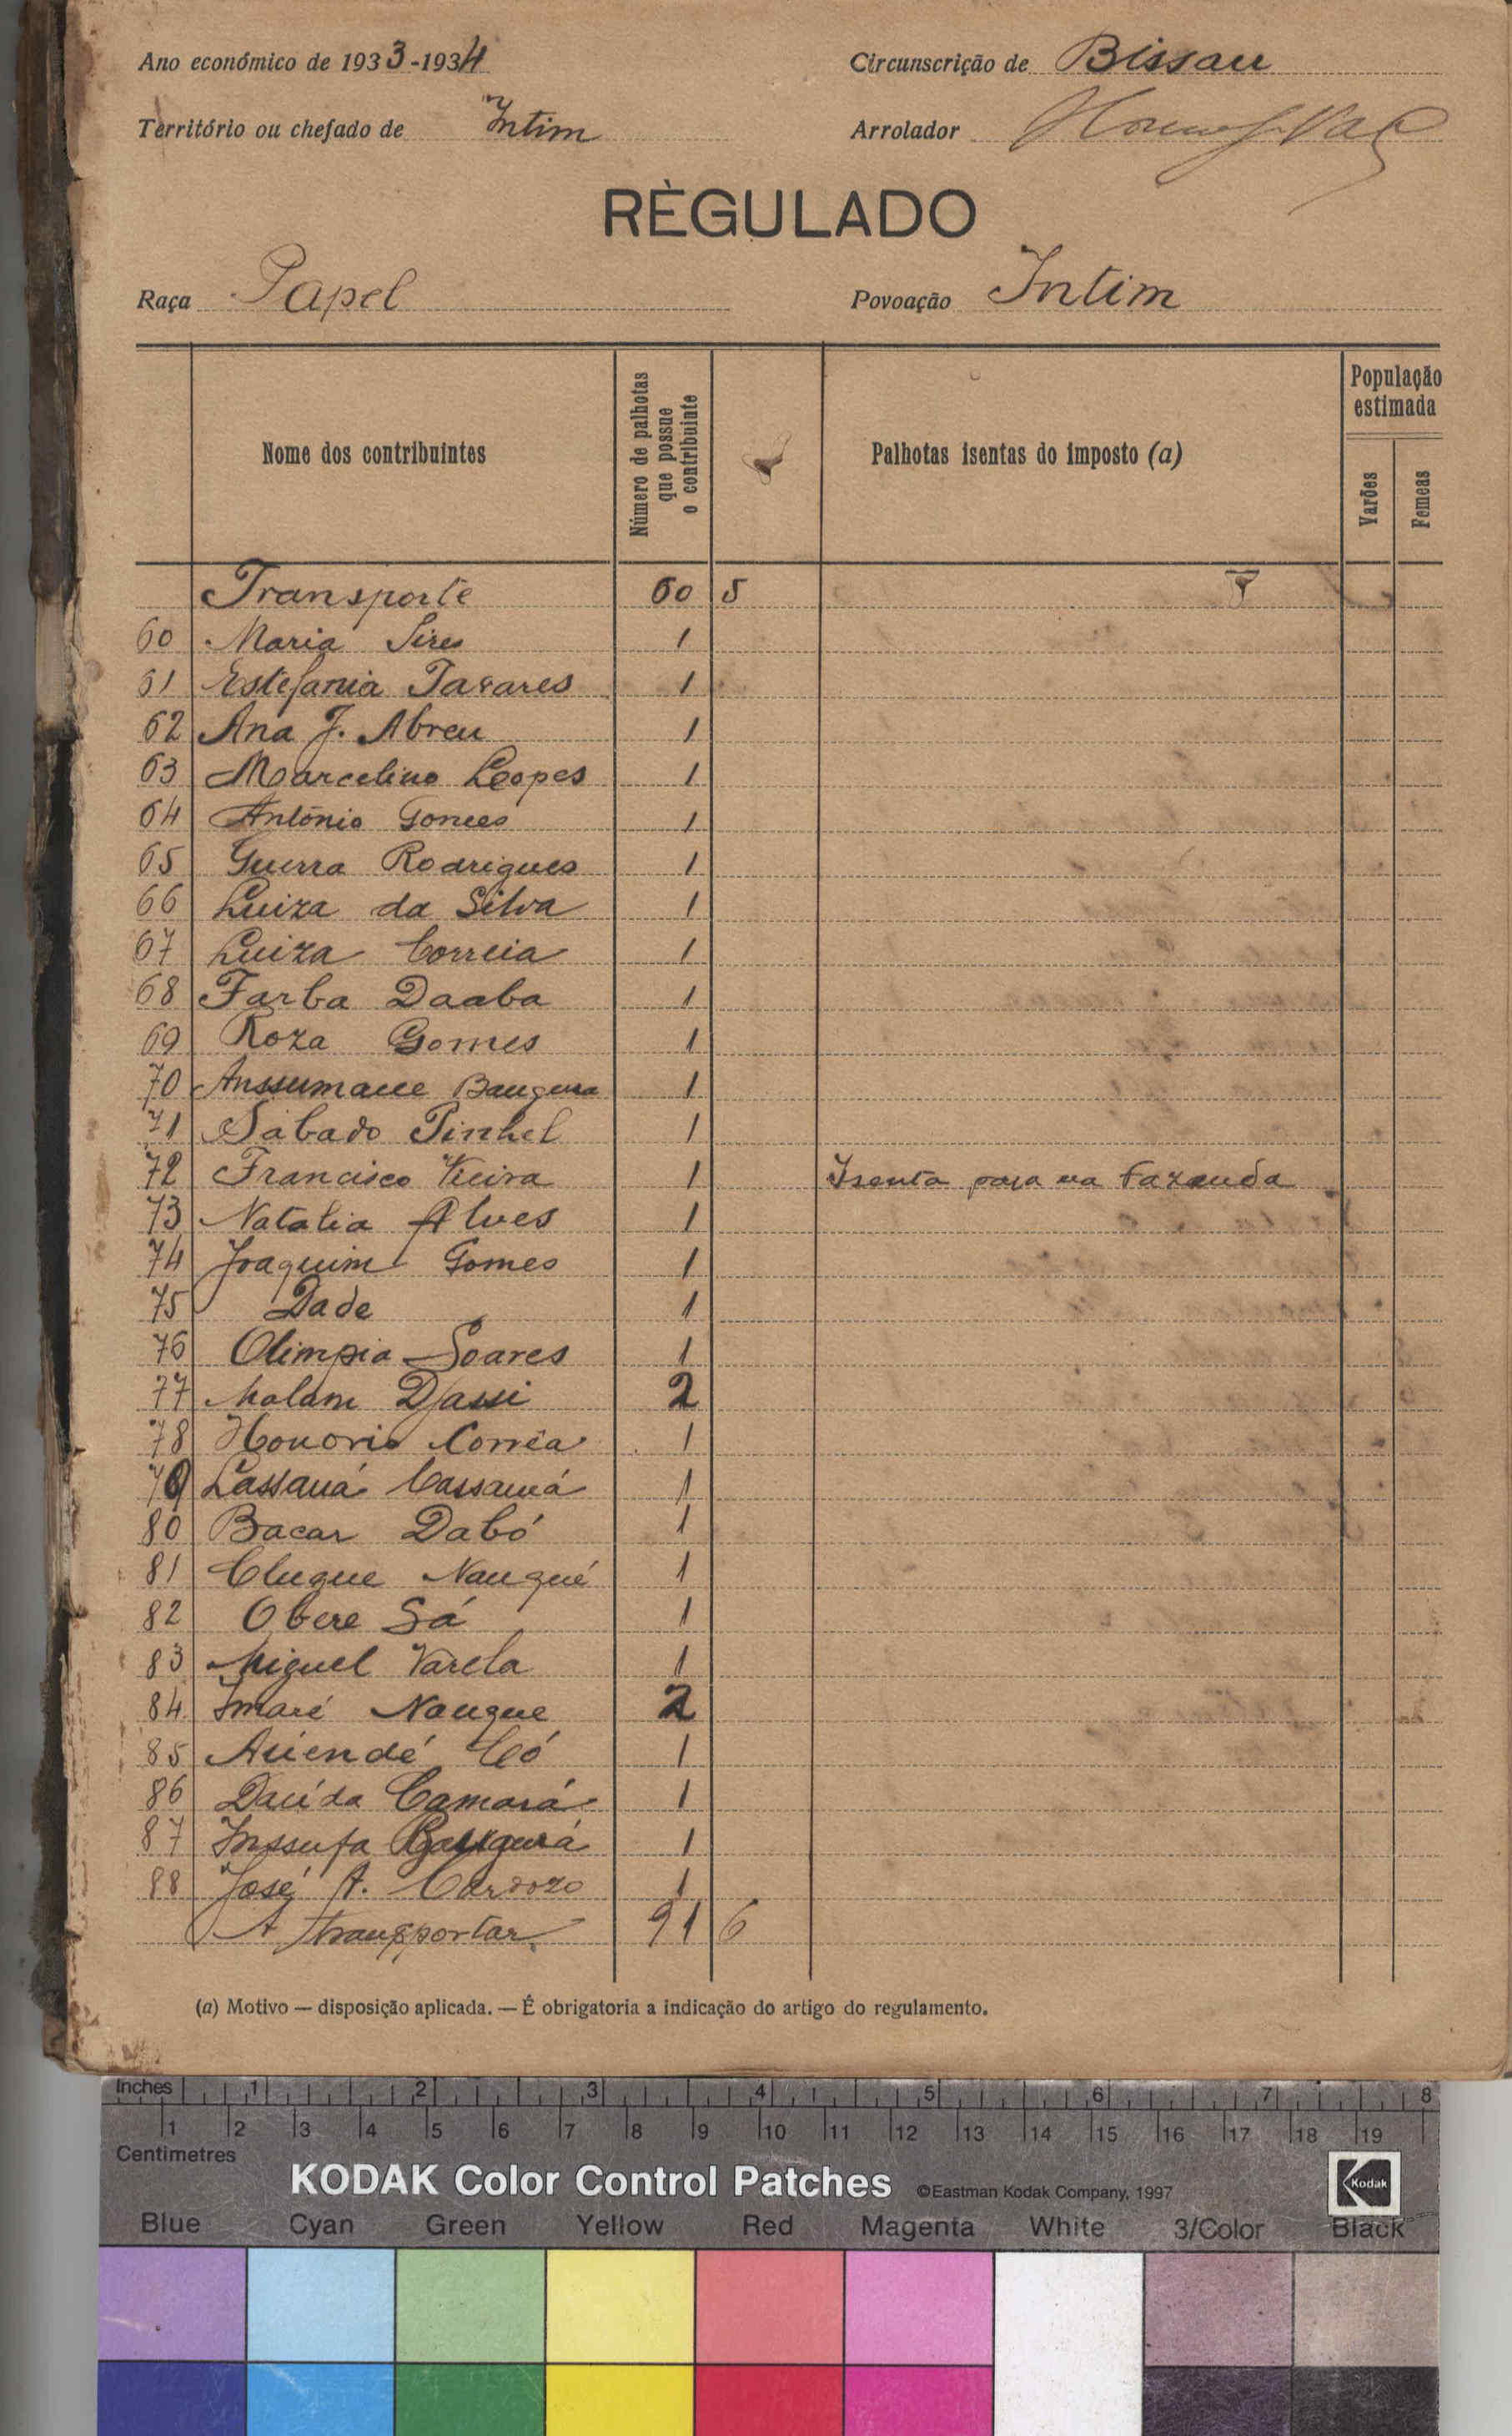 Ano económico de 1933-1934 Circunscrição de Bissau
Território ou chefado de Intim Arrolador
RÈGULADO
Raça Papel Povoação Intim
Nome dos contribuintes
Número de palhotas que possue o contribuinte
Palhotas isentas do imposto (a)
População estimada
Varões
Femeas
Transporte 60 5
60 Maria 1
61 Estefania Tavares 1
62 Ana J. Abreu 1
63 Marcelino Lopes 1
64 António Gomes 1
65 Guerra Rodrigues 1
66 Luiza da Silva 1
67 Luiza Correia 1
68 Farba Daaba 1
69 Roza Gomes 1
70 Anssumane Bangura 1
71 Sábado Pinhel 1
72 Francisco Vieira 1 Isenta paga na Fazenda
73 Natalia Alves 1
74 Joaquim Gomes 1
75 Dade 1
76 Olimpia Soares 1
77 Malam Djassi 2
78 Honorio Corrêa 1
79 Lassaná Cassamá 1
80 Bacar Dabó 1
81 Clugue Nanqué 1
82 Obere Sá 1
83 Miguel Varela 1
84 Imaré Nanque 2
85 Aiendé Có 1
86 Daúda Camará 1
87 Inssufa Bangurá 1
88 José A. Cardozo 1
A transportar 91 6
(a) Motivo — disposição aplicada. — É obrigatoria a indicação do artigo do regulamento.
Inches 1 2 3 4 5 6 7 8
1 2 3 4 5 6 7 8 9 10 11 12 13 14 15 16 17 18 19
Centimetres
KODAK Color Control Patches ©Eastman Kodak Company, 1997 Kodak
Blue Cyan Green Yellow Red Magenta White 3/Color Black